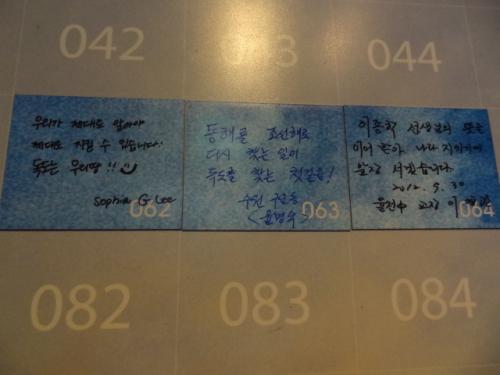 042
043
044
우리가 제대로 알아야
제대로 지킬 수 있습니다!
독도는 우리땅!!
Sophia G Lee
062
동해를 조선해로
다시 찾는 일이
독도를 찾는 첫걸음!
수원
063
이종학 선생님의 뜻을
이어받아 나라 지키기에
앞장 서겠습니다
2012. 9. 30
교장 이
064
082
083
084